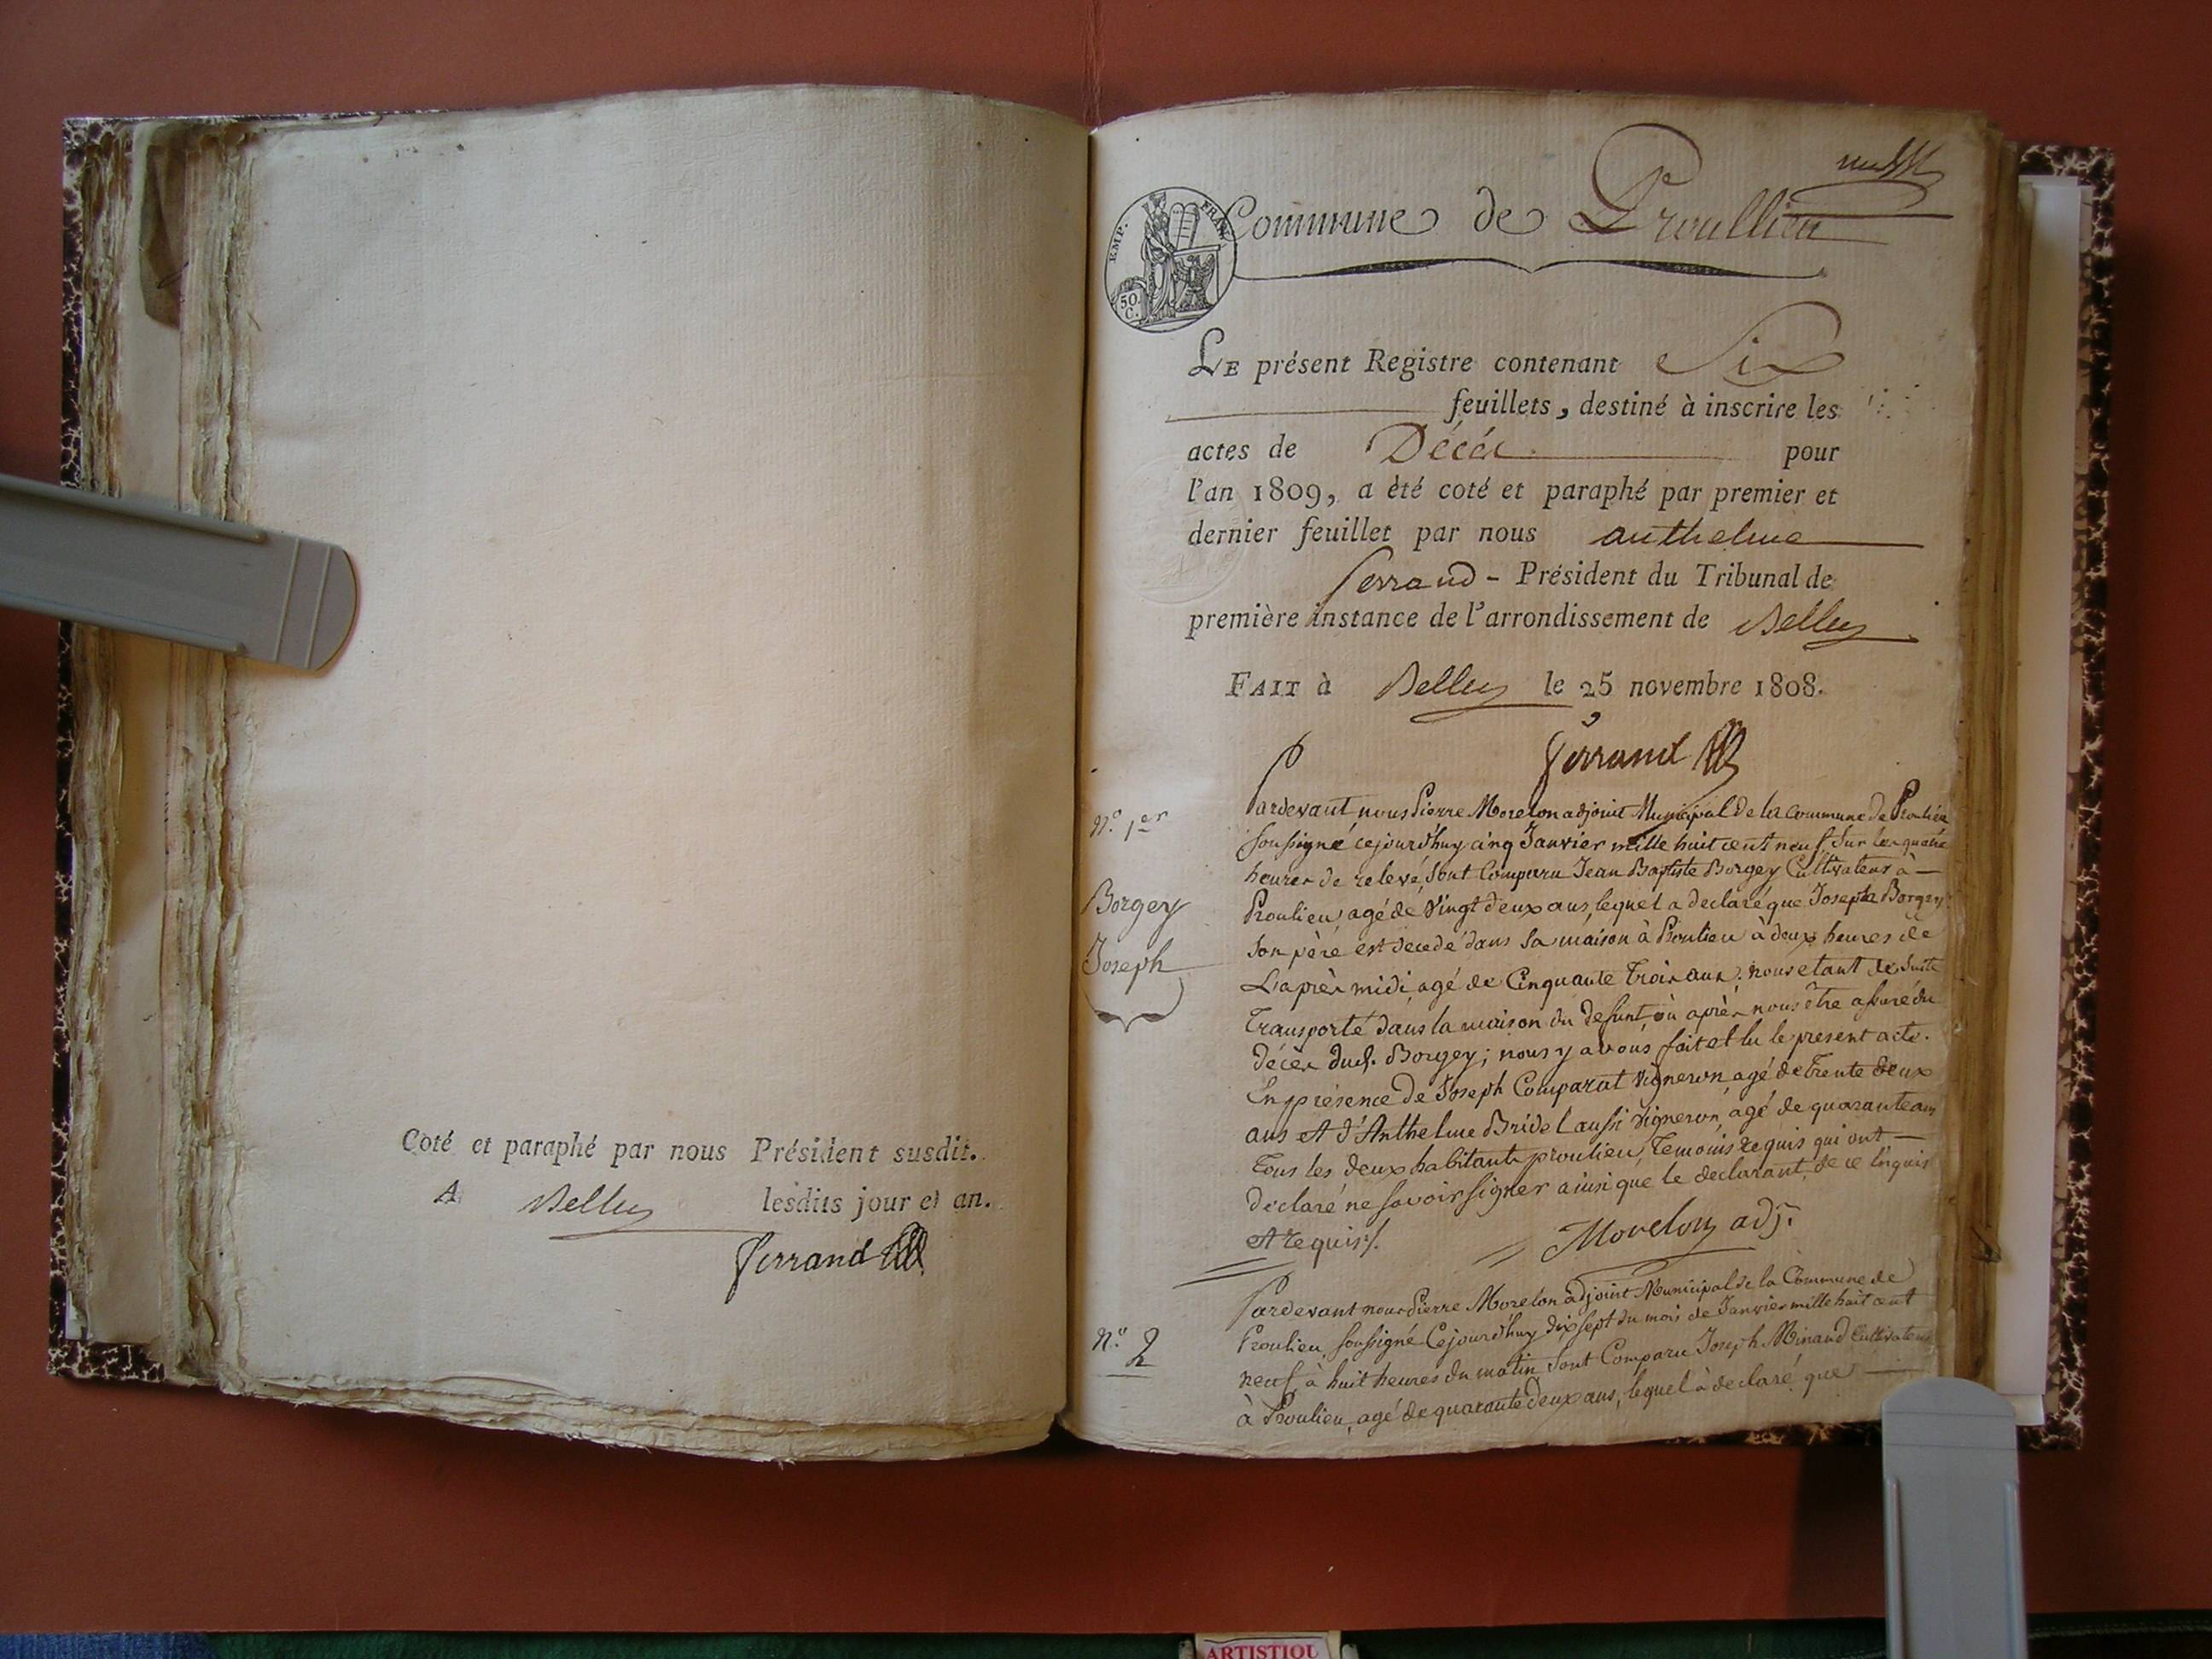 Coté et paraphé par nous Président susdit.
A Belley lesdits jour et an.
Ferrand
Commune de Proullieu
EMP. FRAN.
50. C.
LE présent Registre contenant Six
feuillets, destiné à inscrire les
actes de Décès pour
l'an 1809, a èté coté et paraphé par premier et
dernier feuillet par nous anthelme
ferrand - Président du Tribunal de
première instance de l'arrondissement de Belley
FAIT à Belley le 25 novembre 1808.
Ferrand
N.º 1er
Borgey
Joseph
Pardevant nous Pierre Morelon adjoint Municipal de la commune de Proulieu
soussigné cejourd'huy cinq Janvier mille huit cent neuf sur les quatre
heures de relevé, sont Comparu Jean Baptiste Borgey Cultivateur à —
Proulieu agé de Vingt deux ans, lequel a declaré que Joseph Borgey
son père est decedé dans sa maison à Proulieu à deux heures de
L'après midi, agé de Cinquante trois ans; nous etant de suite
Transporté dans la maison du defunt, où après nous être assuré du
décès dud. Borgey; nous y avons fait et lu le present acte.
En présence de Joseph Comparat Vigneron, agé de trente deux
ans et d'Anthelme Bridel aussi Vigneron, agé de quarante ans
tous les deux habitants proulieu, temoins requis qui ont —
declaré ne savoir signer ainsi que le declarant, de ce enquis
et requis./.
Morelon adj.
N.º 2
Pardevant nous Pierre Morelon adjoint Municipal de la Commune de
Proulieu soussigné Cejourd'huy dix sept du mois de Janvier mille huit cent
neuf, à huit heures du matin, sont Comparu Joseph Minaud Cultivateur
à Proulieu, agé de quarante deux ans, lequel à declaré que —
ARTISTIQU